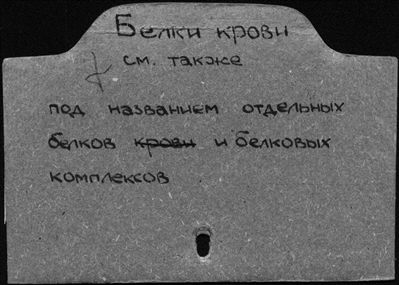 Белки крови
см. также
под названием отдельных
белков крови и белковых
комплексов